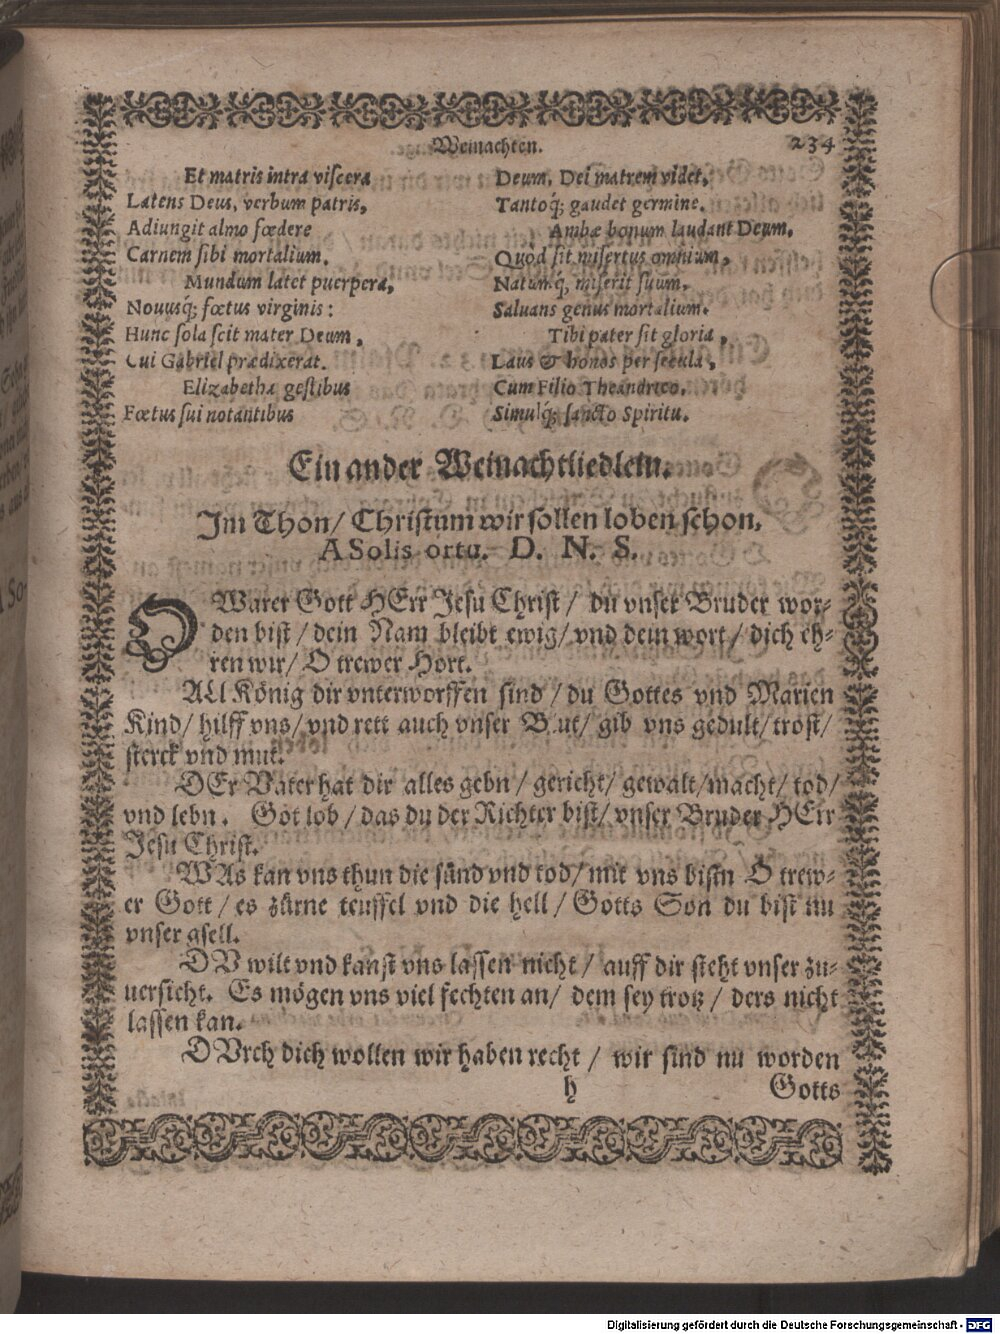 Weinachten.
234
Et matris intra viscera
Latens Deus, verbum patris,
Adiungit almo fœdere
Carnem sibi mortalium.
Mundum latet puerpera,
Nouusq́; fœtus virginis:
Hunc sola scit mater Deum,
Cui Gabriel prædixerat.
Elizabetha gestibus
Fœtus sui notantibus
Deum, Dei matrem videt,
Tantoq́; gaudet germine.
Ambæ bonum laudant Deum,
Quod sit misertus omnium,
Natumq́, miserit suum,
Saluans genus mortalium.
Tibi pater sit gloria,
Laus & honos per secula,
Cum Filio Theandrico,
Simulq́; sancto Spiritu.
Ein ander Weinachtliedlein.
Im Thon/ Christum wir sollen loben schon,
A Solis ortu. D. N. S.
O Warer Gott HErr Jesu Christ / du vnser Bruder wor-
den bist / dein Nam bleibt ewig/ vnd dein wort / dich eh-
ren wir/ O trewer Hort.
ALl König dir vnterworffen sind / du Gottes vnd Marien
Kind/ hilff vns/ vnd rett auch vnser Blut/ gib vns gedult/ trost/
sterck vnd mut.
DEr Vater hat dir alles gebn / gericht/ gewalt/ macht/ tod/
vnd lebn. Got lob / das du der Richter bist/ vnser Bruder HErr
Jesu Christ.
WAs kan vns thun die sünd vnd tod/ mit vns bistu O trew-
er Gott / es zürne teuffel vnd die hell / Gotts Son du bist nu
vnser gsell.
DV wilt vnd kanst vns lassen nicht / auff dir steht vnser zu-
uersicht. Es mögen vns viel fechten an/ dem sey trotz / ders nicht
lassen kan.
DVrch dich wollen wir haben recht / wir sind nu worden
h
Gotts
Digitalisierung gefördert durch die Deutsche Forschungsgemeinschaft - DFG